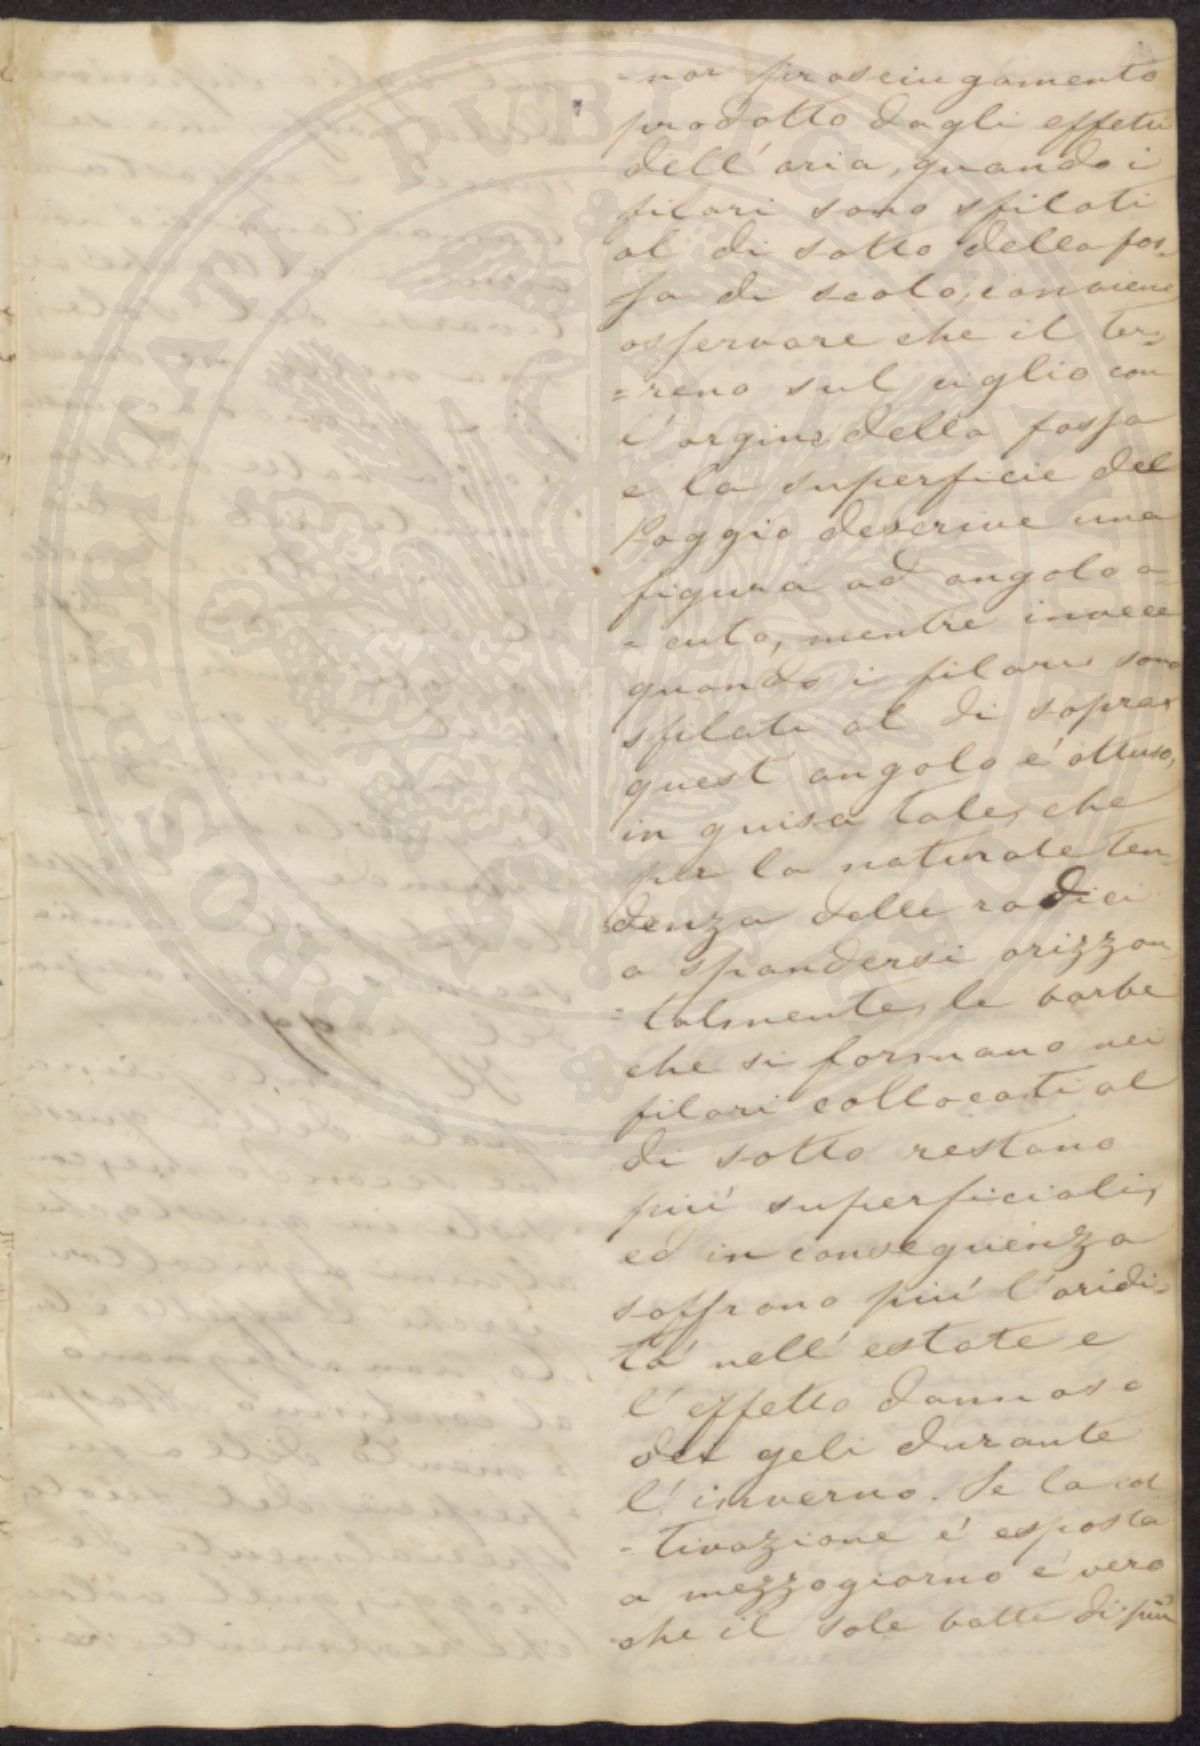 =nor prosciugamento
prodotto dagli effetti
dell' aria, quando i
filari sono sfilati
al di sotto della fos=
=sa di scolo, conviene
osservare che il ter=
=reno sul ciglio con
l'argine della fossa
e la superficie del
Poggio descrive una
figura ad angolo a=
=cuto, mentre invece
quando i filari sono
sfilati al di sopra
quest angolo é ottuso,
in guisa tale, che
per la naturale ten=
denza delle radici
a spandersi orizzon
=talmente, le barbe
che si formano nei
filari collocati al
di sotto restano
piú superficiali,
ed in conseguenza
soffrono piú l'aridi=
tá nell' estate e
l'effetto dannoso
dei geli durante
l'inverno. Se la col
=tivazione é esposta
a mezzogiorno é vero
che il sole batte di piú
PROSPERITATI PUBLICAE AUGENDAE